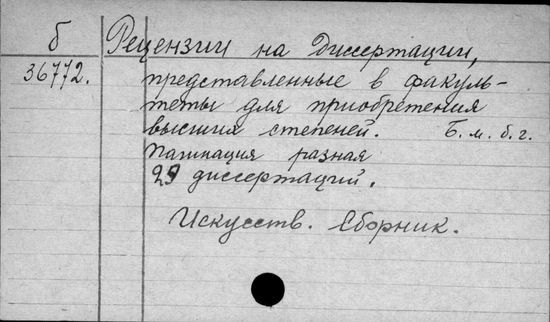 б
36772.
Рецензии на Диссертации,
представленные в факуль-
теты для приобретения
высших степеней. Б. м. б. г.
Пагинация разная
29 диссертаций.
Искусств. Сборник.